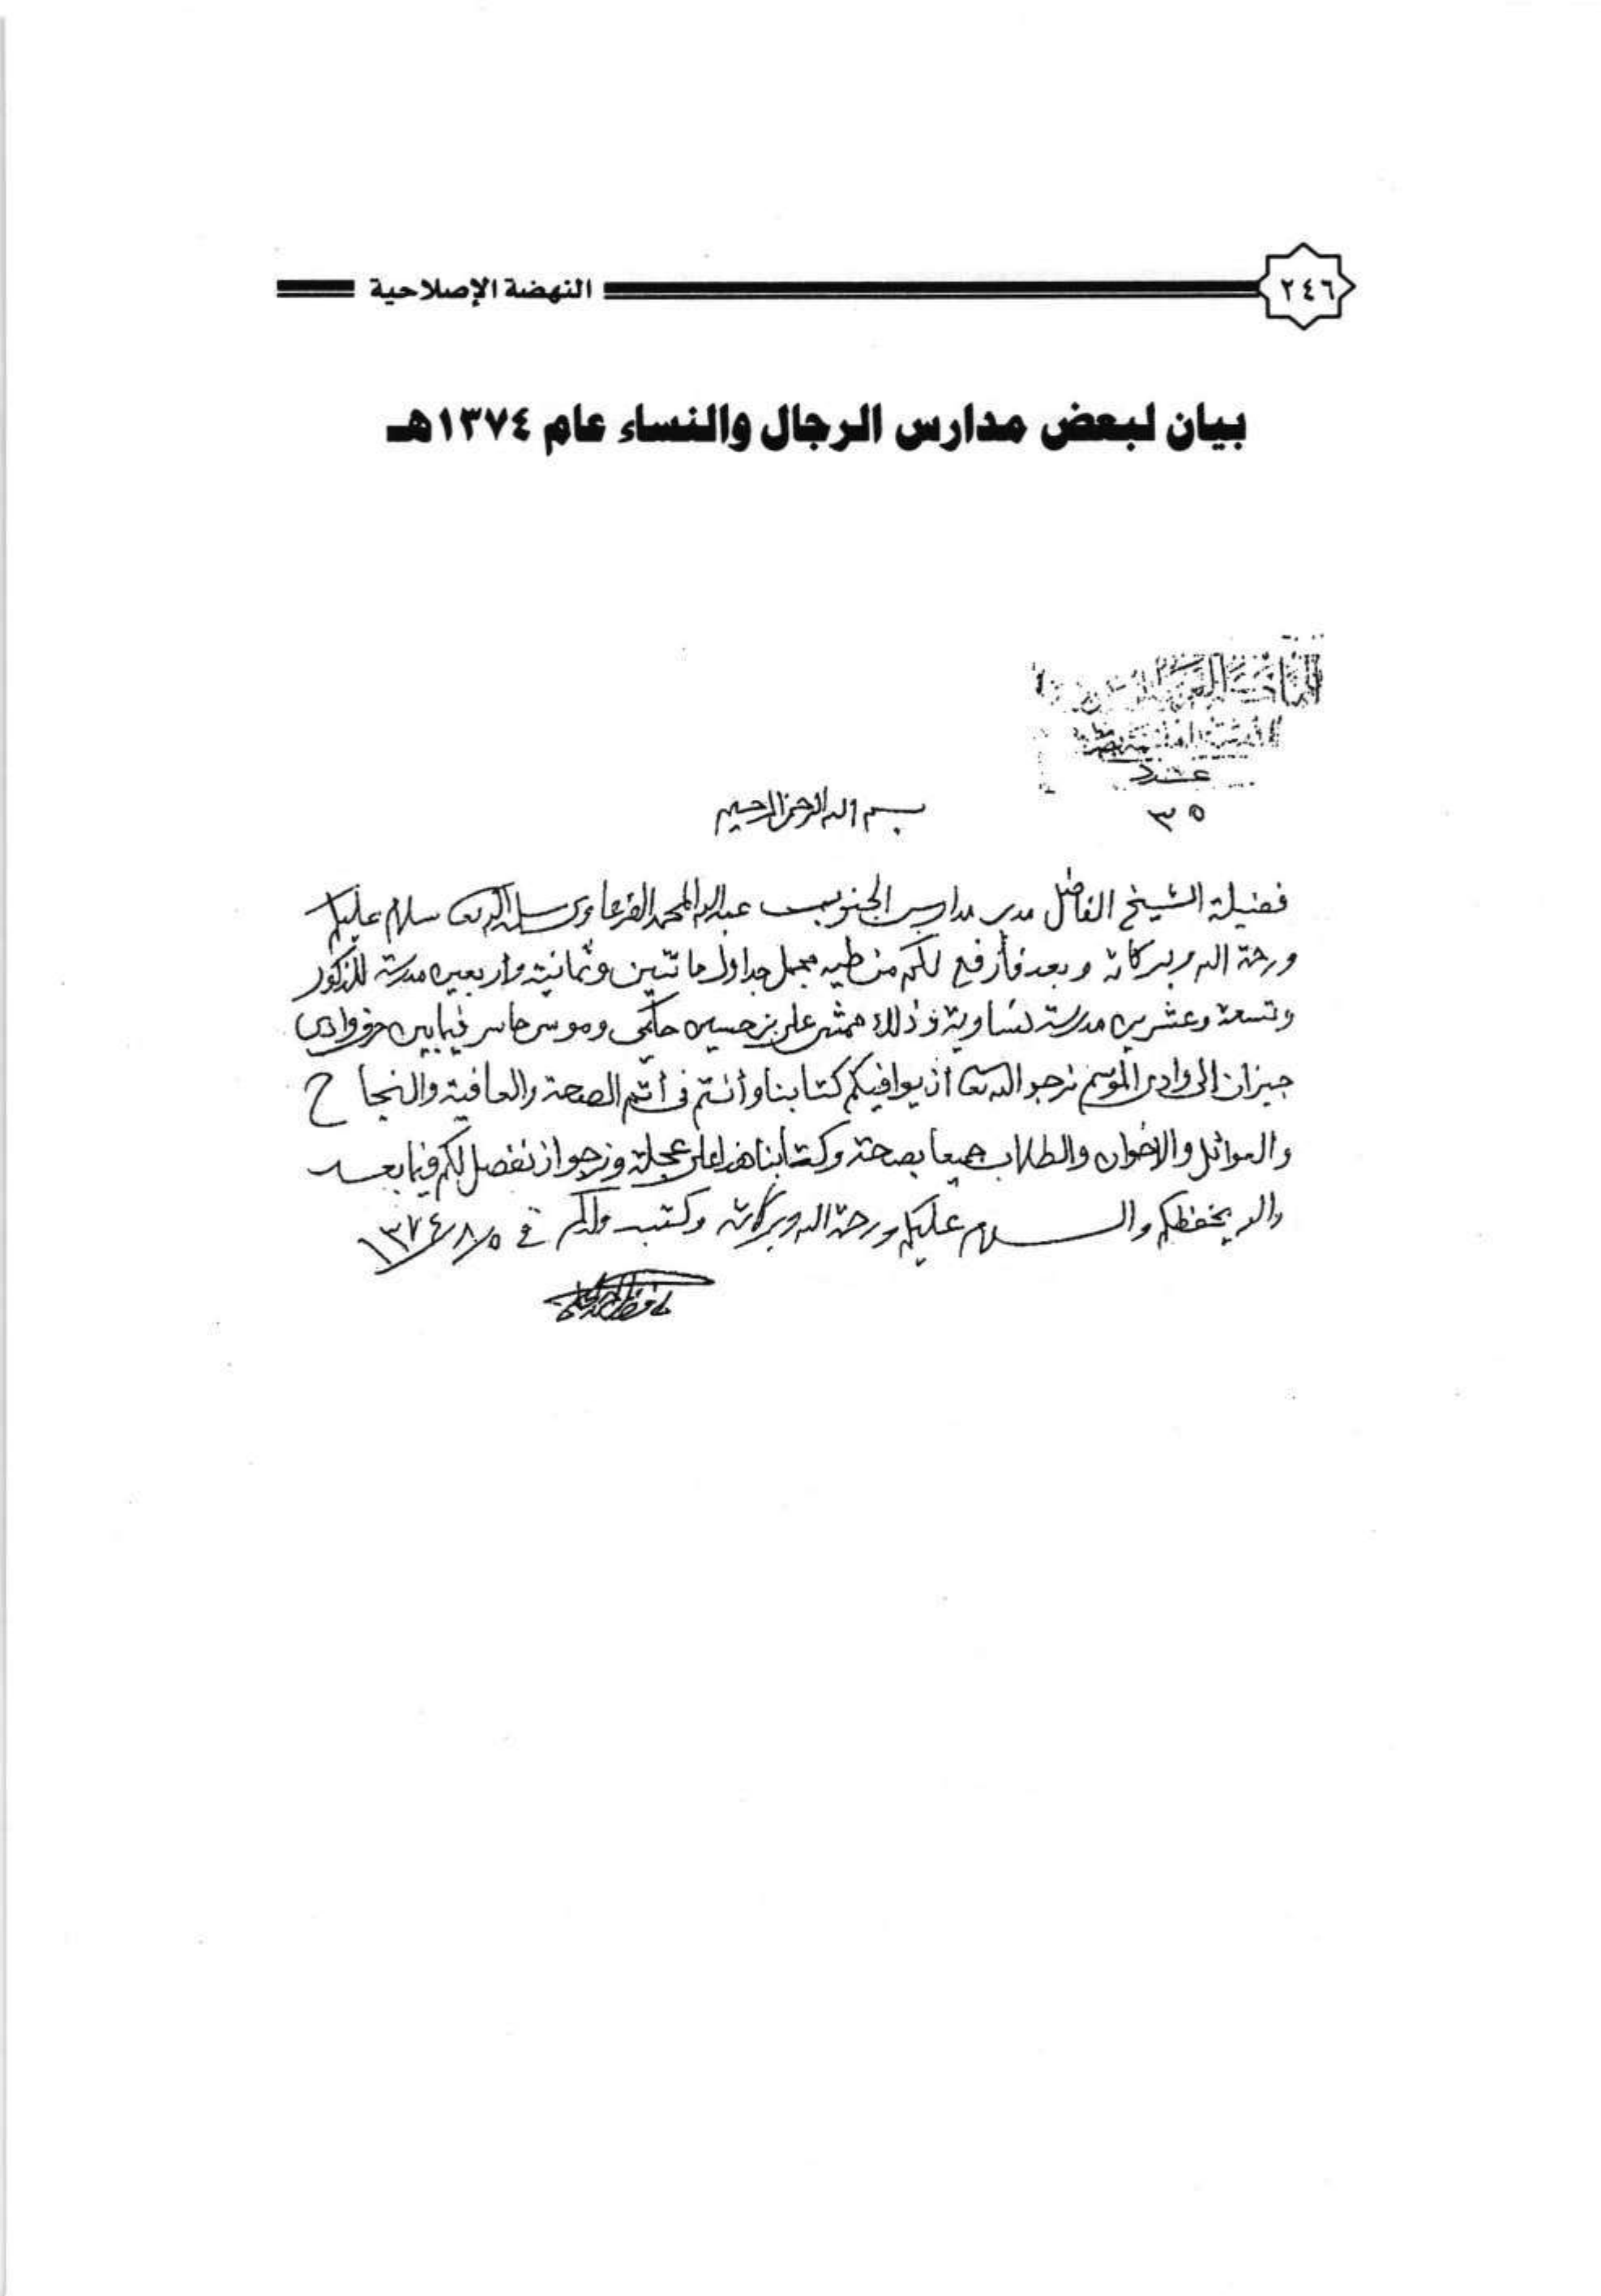 ٢٤٦
النهضة الإصلاحية
بيان لبعض مدارس الرجال والنساء عام ١٣٧٤هـ
عدد
٣٥
بسم الله الرحمن الرحيم
فضيلة الشيخ الفاضل مدير مدارس الجنوب عبدالله المحمد القرعاوي سلمه الله تعا سلام عليكم
ورحمة الله وبركاته وبعد فأرفع لكم من طيه مجمل جداول مائتين وثمانية واربعين مدرسة للذكور
وتسعة وعشرين مدرسة نساوية وذلك ممشى علي بن حسين حكمي وموسى حاسر فيما بين وادي
جيزان إلى وادي الموسم نرجو الله تعا أن يوافيكم كتابنا وأنتم في أتم الصحة والعافية والنجاح
والعوائل والاخوان والطلاب جميعا بصحة وكتابنا هذا على عجلة ونرجو ان نفصل لكم فيما بعد
والله يحفظكم والسلام عليكم ورحمة الله وبركاته وكتب ولدكم في ١٣٧٤/٨/٥